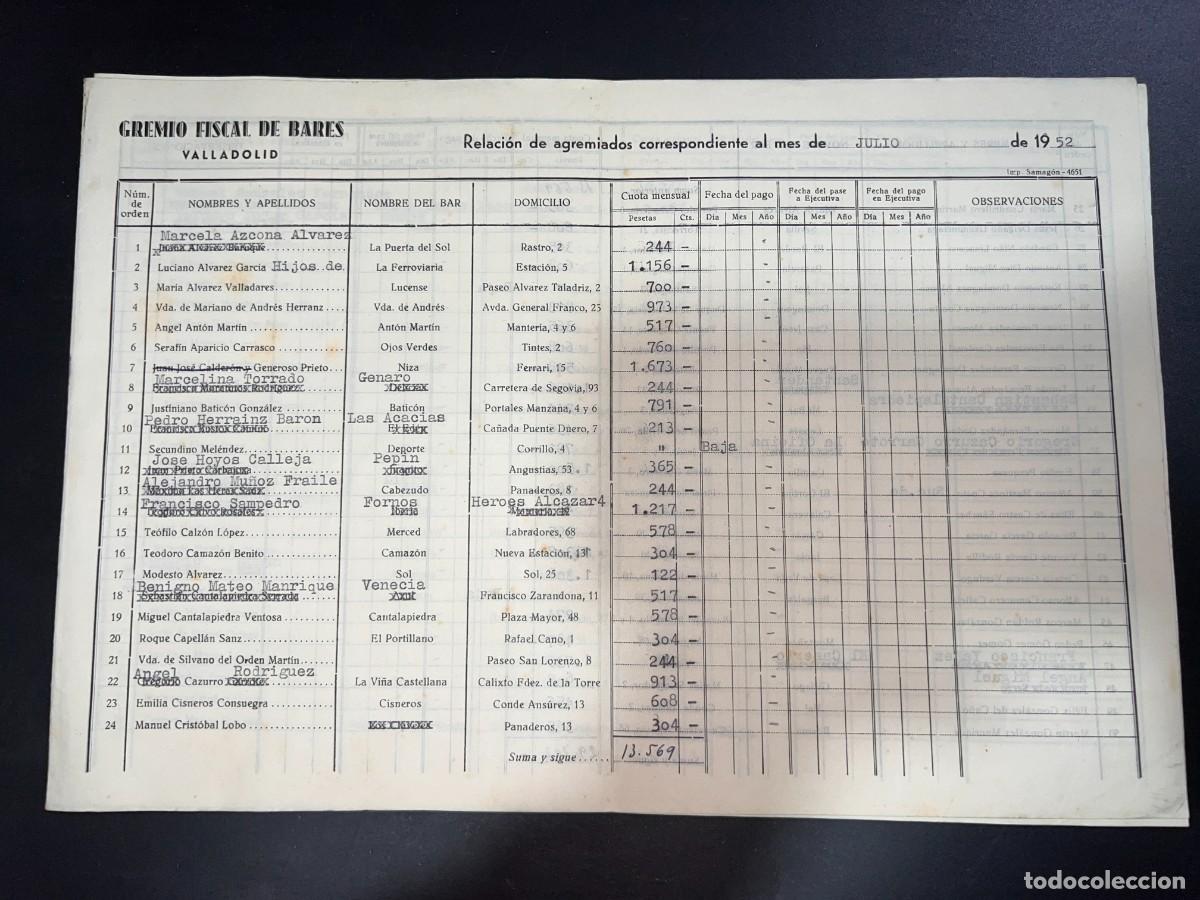 GREMIO FISCAL DE BARES
VALLADOLID
Relación de agremiados correspondiente al mes de JULIO de 1952
Imp. Samagón - 4651
Núm. de orden NOMBRES Y APELLIDOS NOMBRE DEL BAR DOMICILIO Cuota mensual Fecha del pago Fecha del pase a Ejecutiva Fecha del pago en Ejecutiva OBSERVACIONES
Pesetas Cts. Día Mes Año Día Mes Año Día Mes Año
Marcela Azcona Alvarez
1 La Puerta del Sol Rastro, 2 244 —
2 Luciano Alvarez García Hijos de La Ferroviaria Estación, 5 1.156 —
3 María Alvarez Valladares Lucense Paseo Alvarez Taladriz, 2 700 —
4 Vda. de Mariano de Andrés Herranz Vda. de Andrés Avda. General Franco, 25 973 —
5 Angel Antón Martín Antón Martín Mantería, 4 y 6 517 —
6 Serafín Aparicio Carrasco Ojos Verdes Tintes, 2 760 —
7 Juan José Calderón y Generoso Prieto Niza Ferrari, 15 1.673 —
Marcelina Torrado Genaro
8 Carretera de Segovia, 93 244 —
9 Justiniano Baticón González Baticón Portales Manzana, 4 y 6 791 —
Pedro Herrainz Baron Las Acacias
10 Cañada Puente Duero, 7 213 —
11 Secundino Meléndez Deporte Corrillo, 4 " — Baja
Jose Hoyos Calleja Pepin
12 Juan Prieto Angustias, 53 365 —
Alejandro Muñoz Fraile
13 Cabezudo Panaderos, 8 244 —
Francisco Sampedro Fornos Heroes Alcazar4
14 1.217 —
15 Teófilo Calzón López Merced Labradores, 68 578 —
16 Teodoro Camazón Benito Camazón Nueva Estación, 13 304 —
17 Modesto Alvarez Sol Sol, 25 122 —
Benigno Mateo Manrique Venecia
18 Sebastián Cantalapiedra Azul Francisco Zarandona, 11 517 —
19 Miguel Cantalapiedra Ventosa Cantalapiedra Plaza Mayor, 48 578 —
20 Roque Capellán Sanz El Portillano Rafael Cano, 1 304 —
21 Vda. de Silvano del Orden Martín Paseo San Lorenzo, 8 244 —
Angel Rodriguez
22 Gregorio Cazurro La Viña Castellana Calixto Fdez. de la Torre 913 —
23 Emilia Cisneros Consuegra Cisneros Conde Ansúrez, 13 608 —
24 Manuel Cristóbal Lobo Panaderos, 13 304 —
Suma y sigue 13.569
todocoleccion